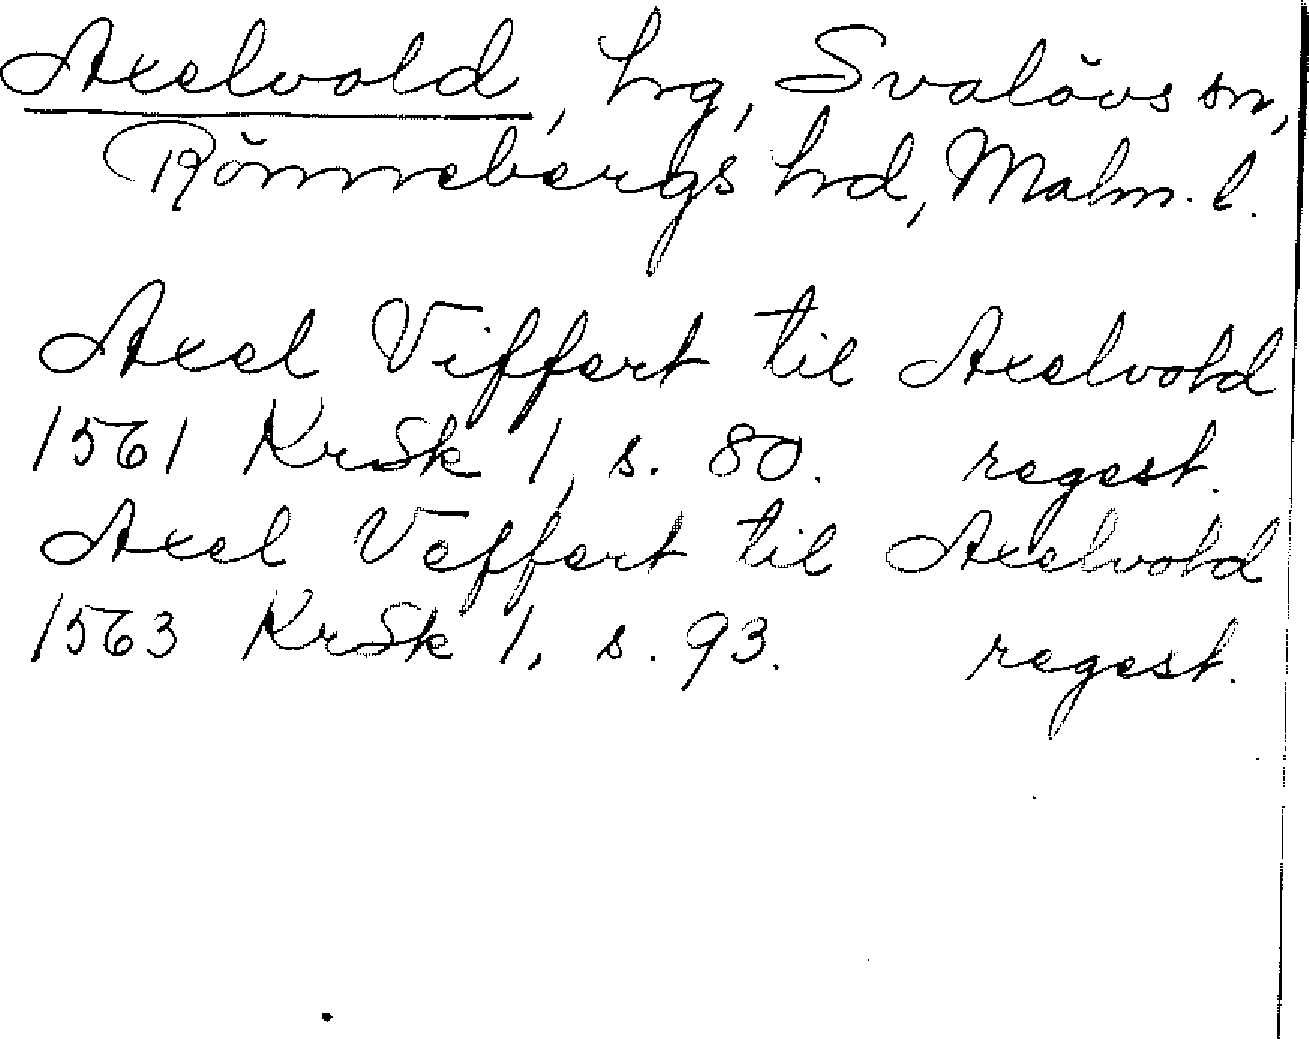 Axelvold, hrg, Svalövs sn,
Rönnebergs hrd, Malm. l.
Axel Viffert til Axelvold
1561 KrSk 1, s. 80. regest.
Axel Veffert til Axelvold
1563 KrSk 1, s. 93. regest.